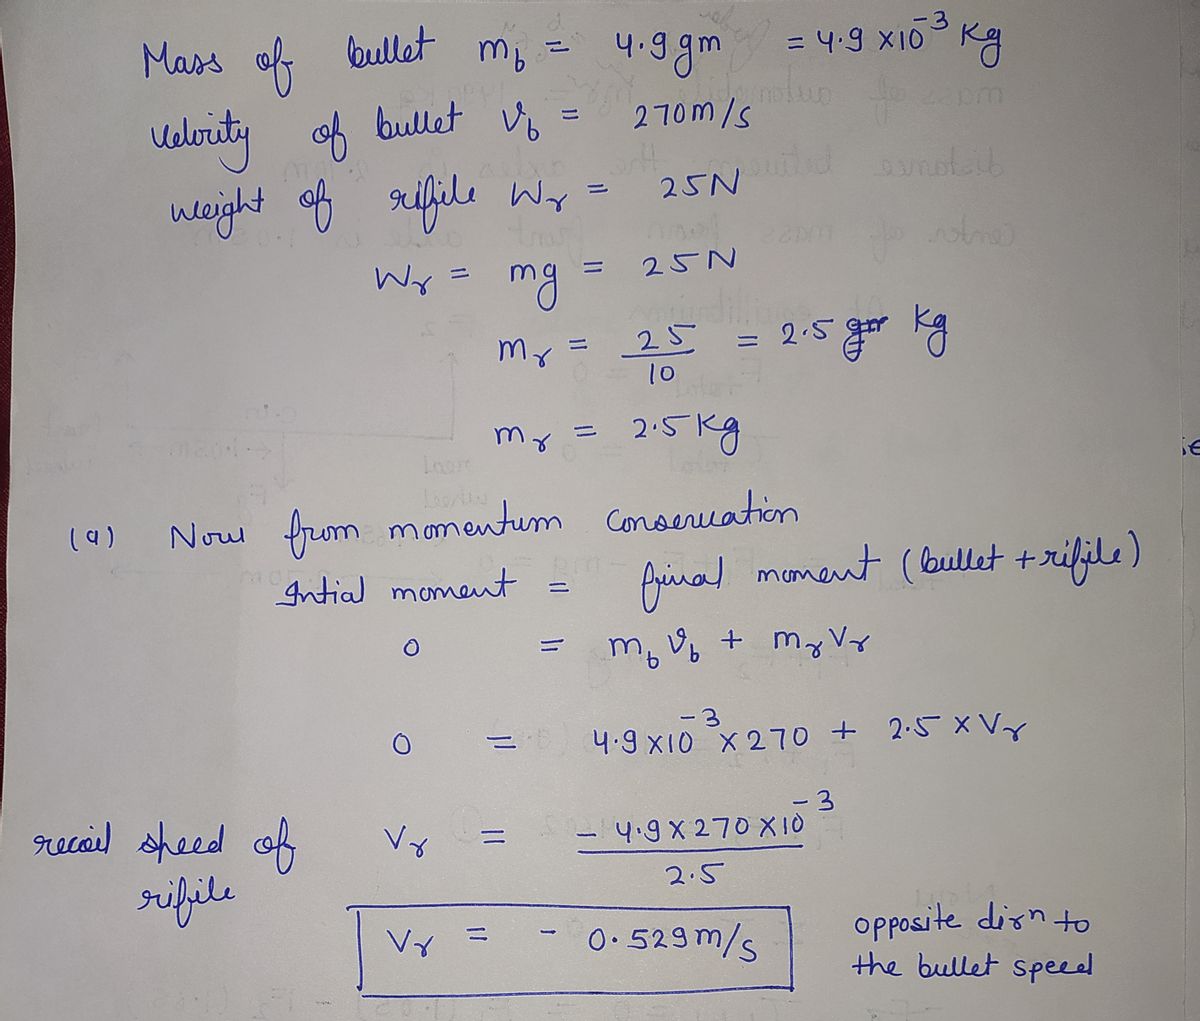 Mass of bullet m_b = 4.9 gm = 4.9 × 10⁻³ Kg
Velocity of bullet v_b = 270 m/s
weight of rifile W_r = 25 N
W_r = mg = 25 N
m_r = 25/10 = 2.5 Kg
m_r = 2.5 Kg
(a) Now from momentum conservation
Intial moment = final moment (bullet + rifile)
0 = m_b v_b + m_r V_r
0 = 4.9 × 10⁻³ × 270 + 2.5 × V_r
recoil speed of rifile V_r = - 4.9 × 270 × 10⁻³ / 2.5
V_r = - 0.529 m/s opposite dirn to
the bullet speed